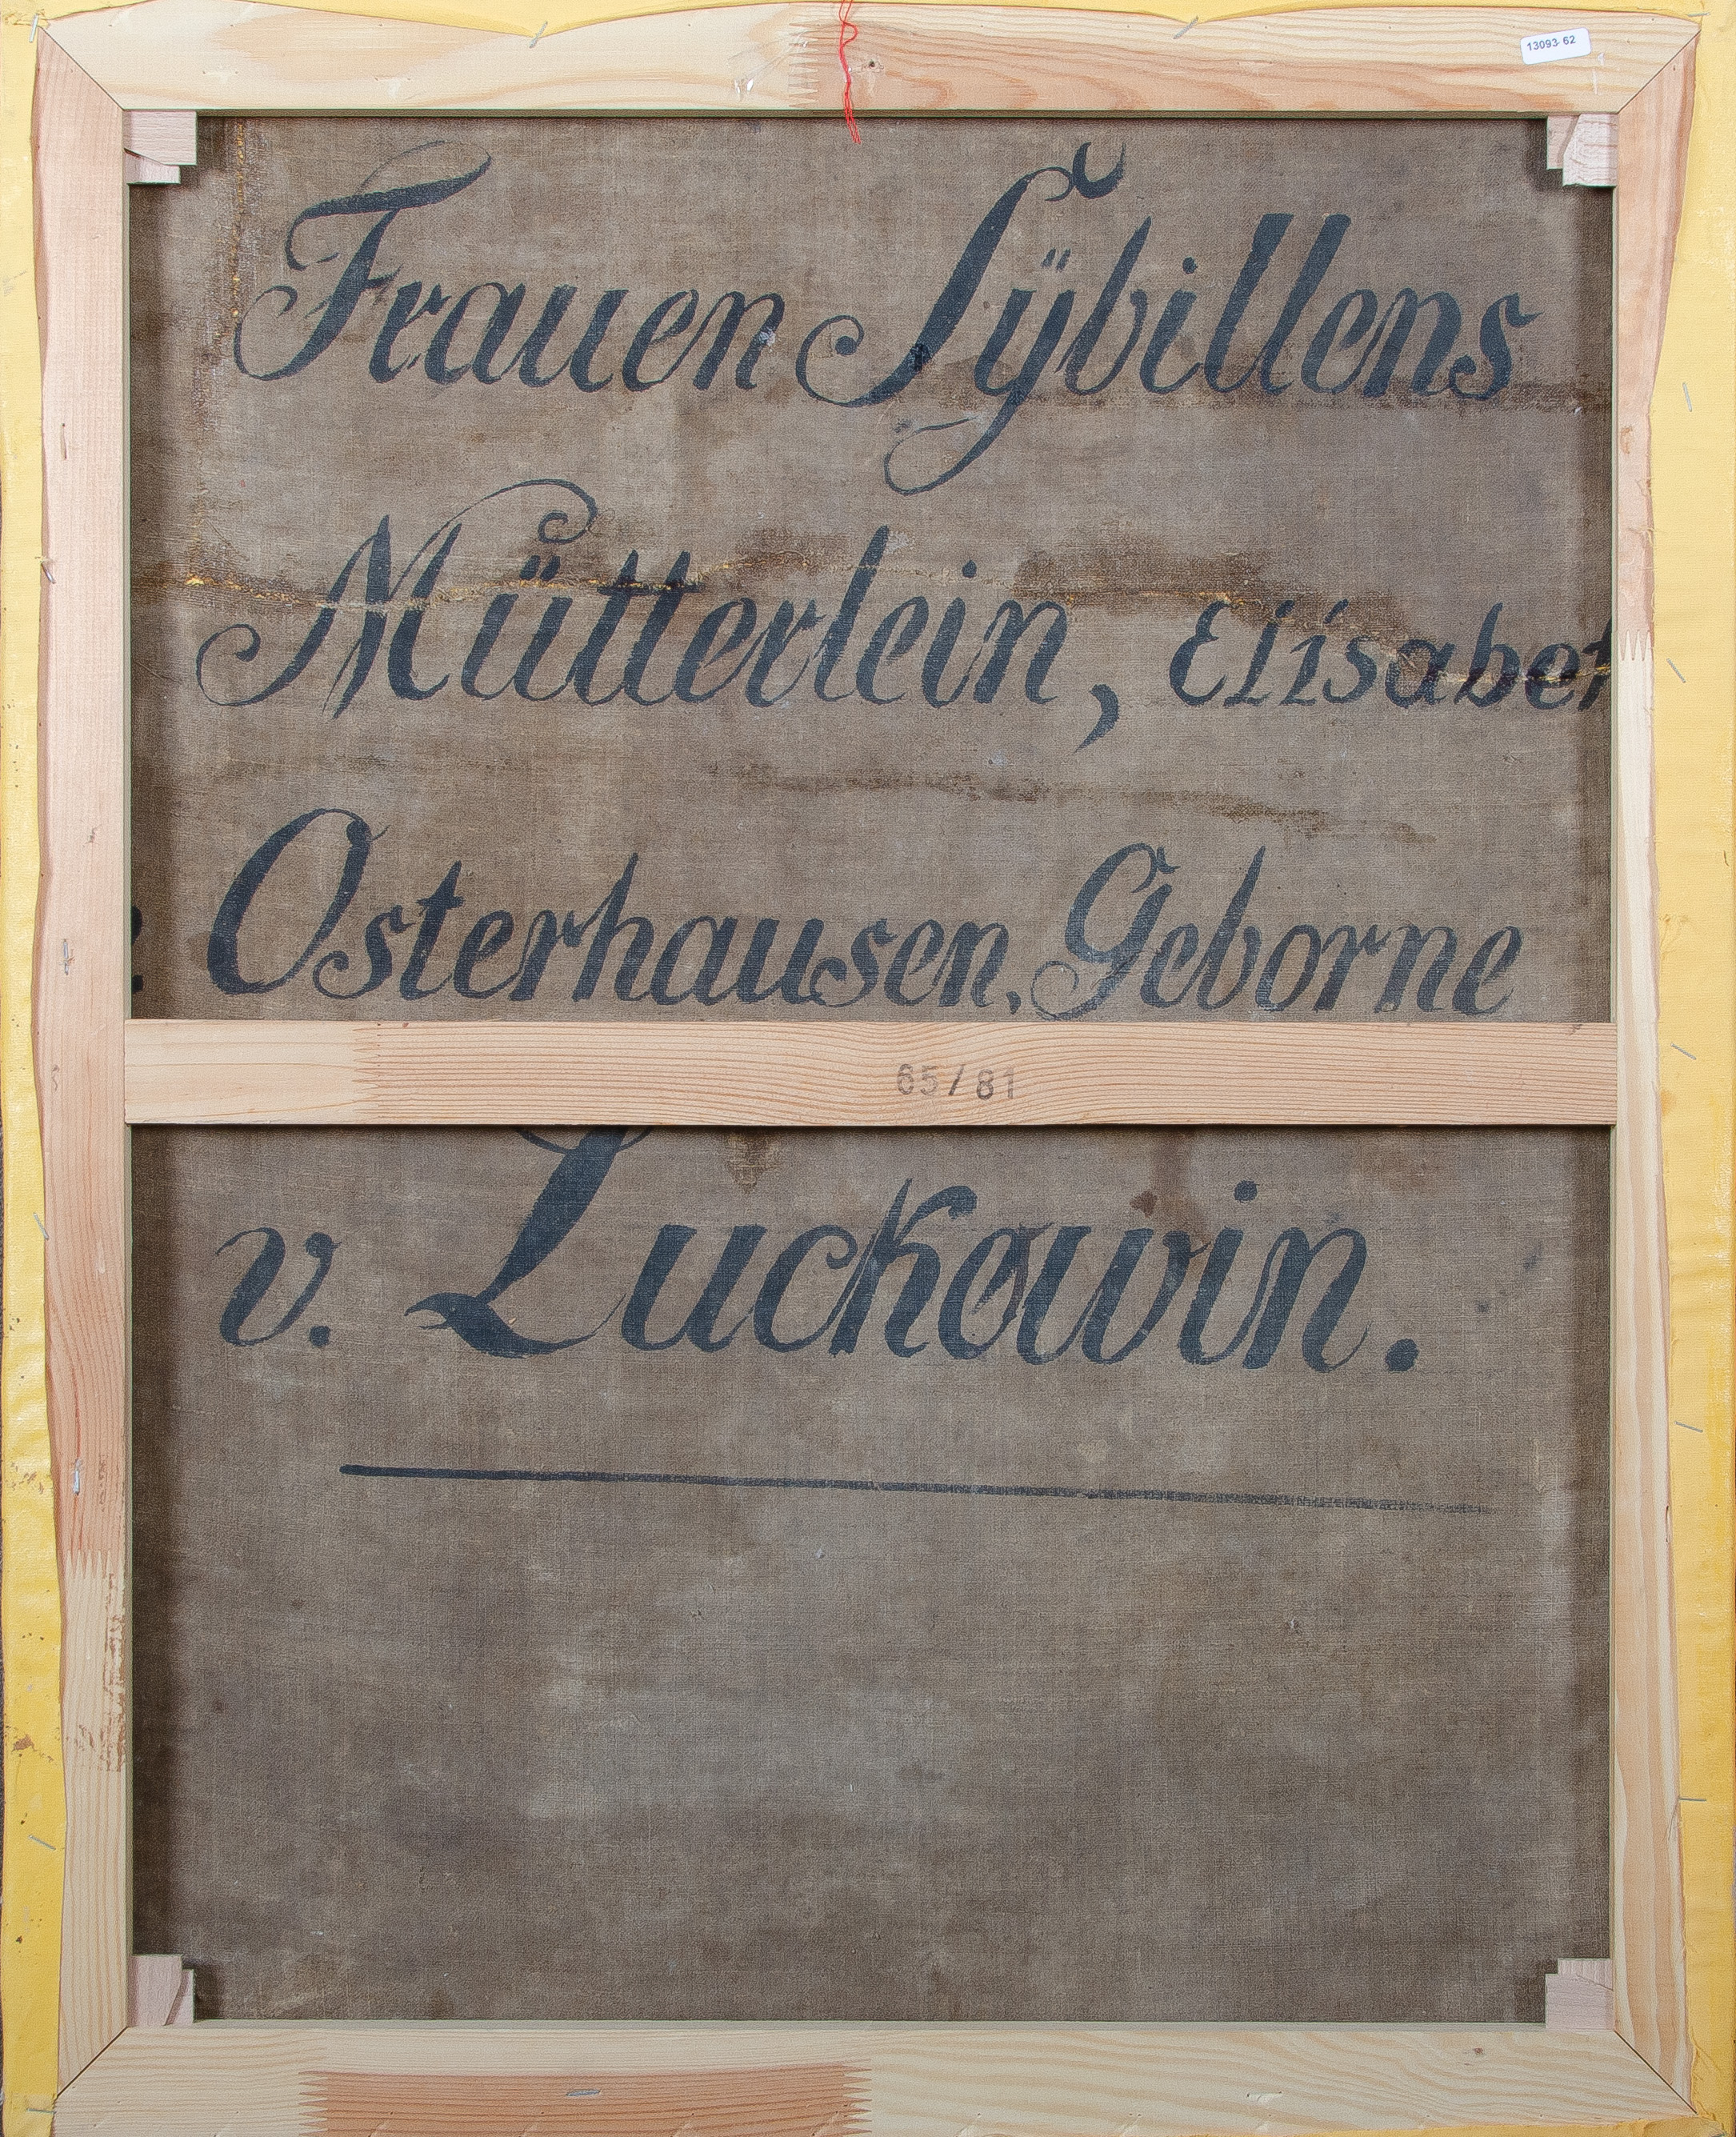 13093 62
Frauen Sÿbillens
Mütterlein, Elisabet
Osterhausen. Geborne
65/81
v. Luckowin.